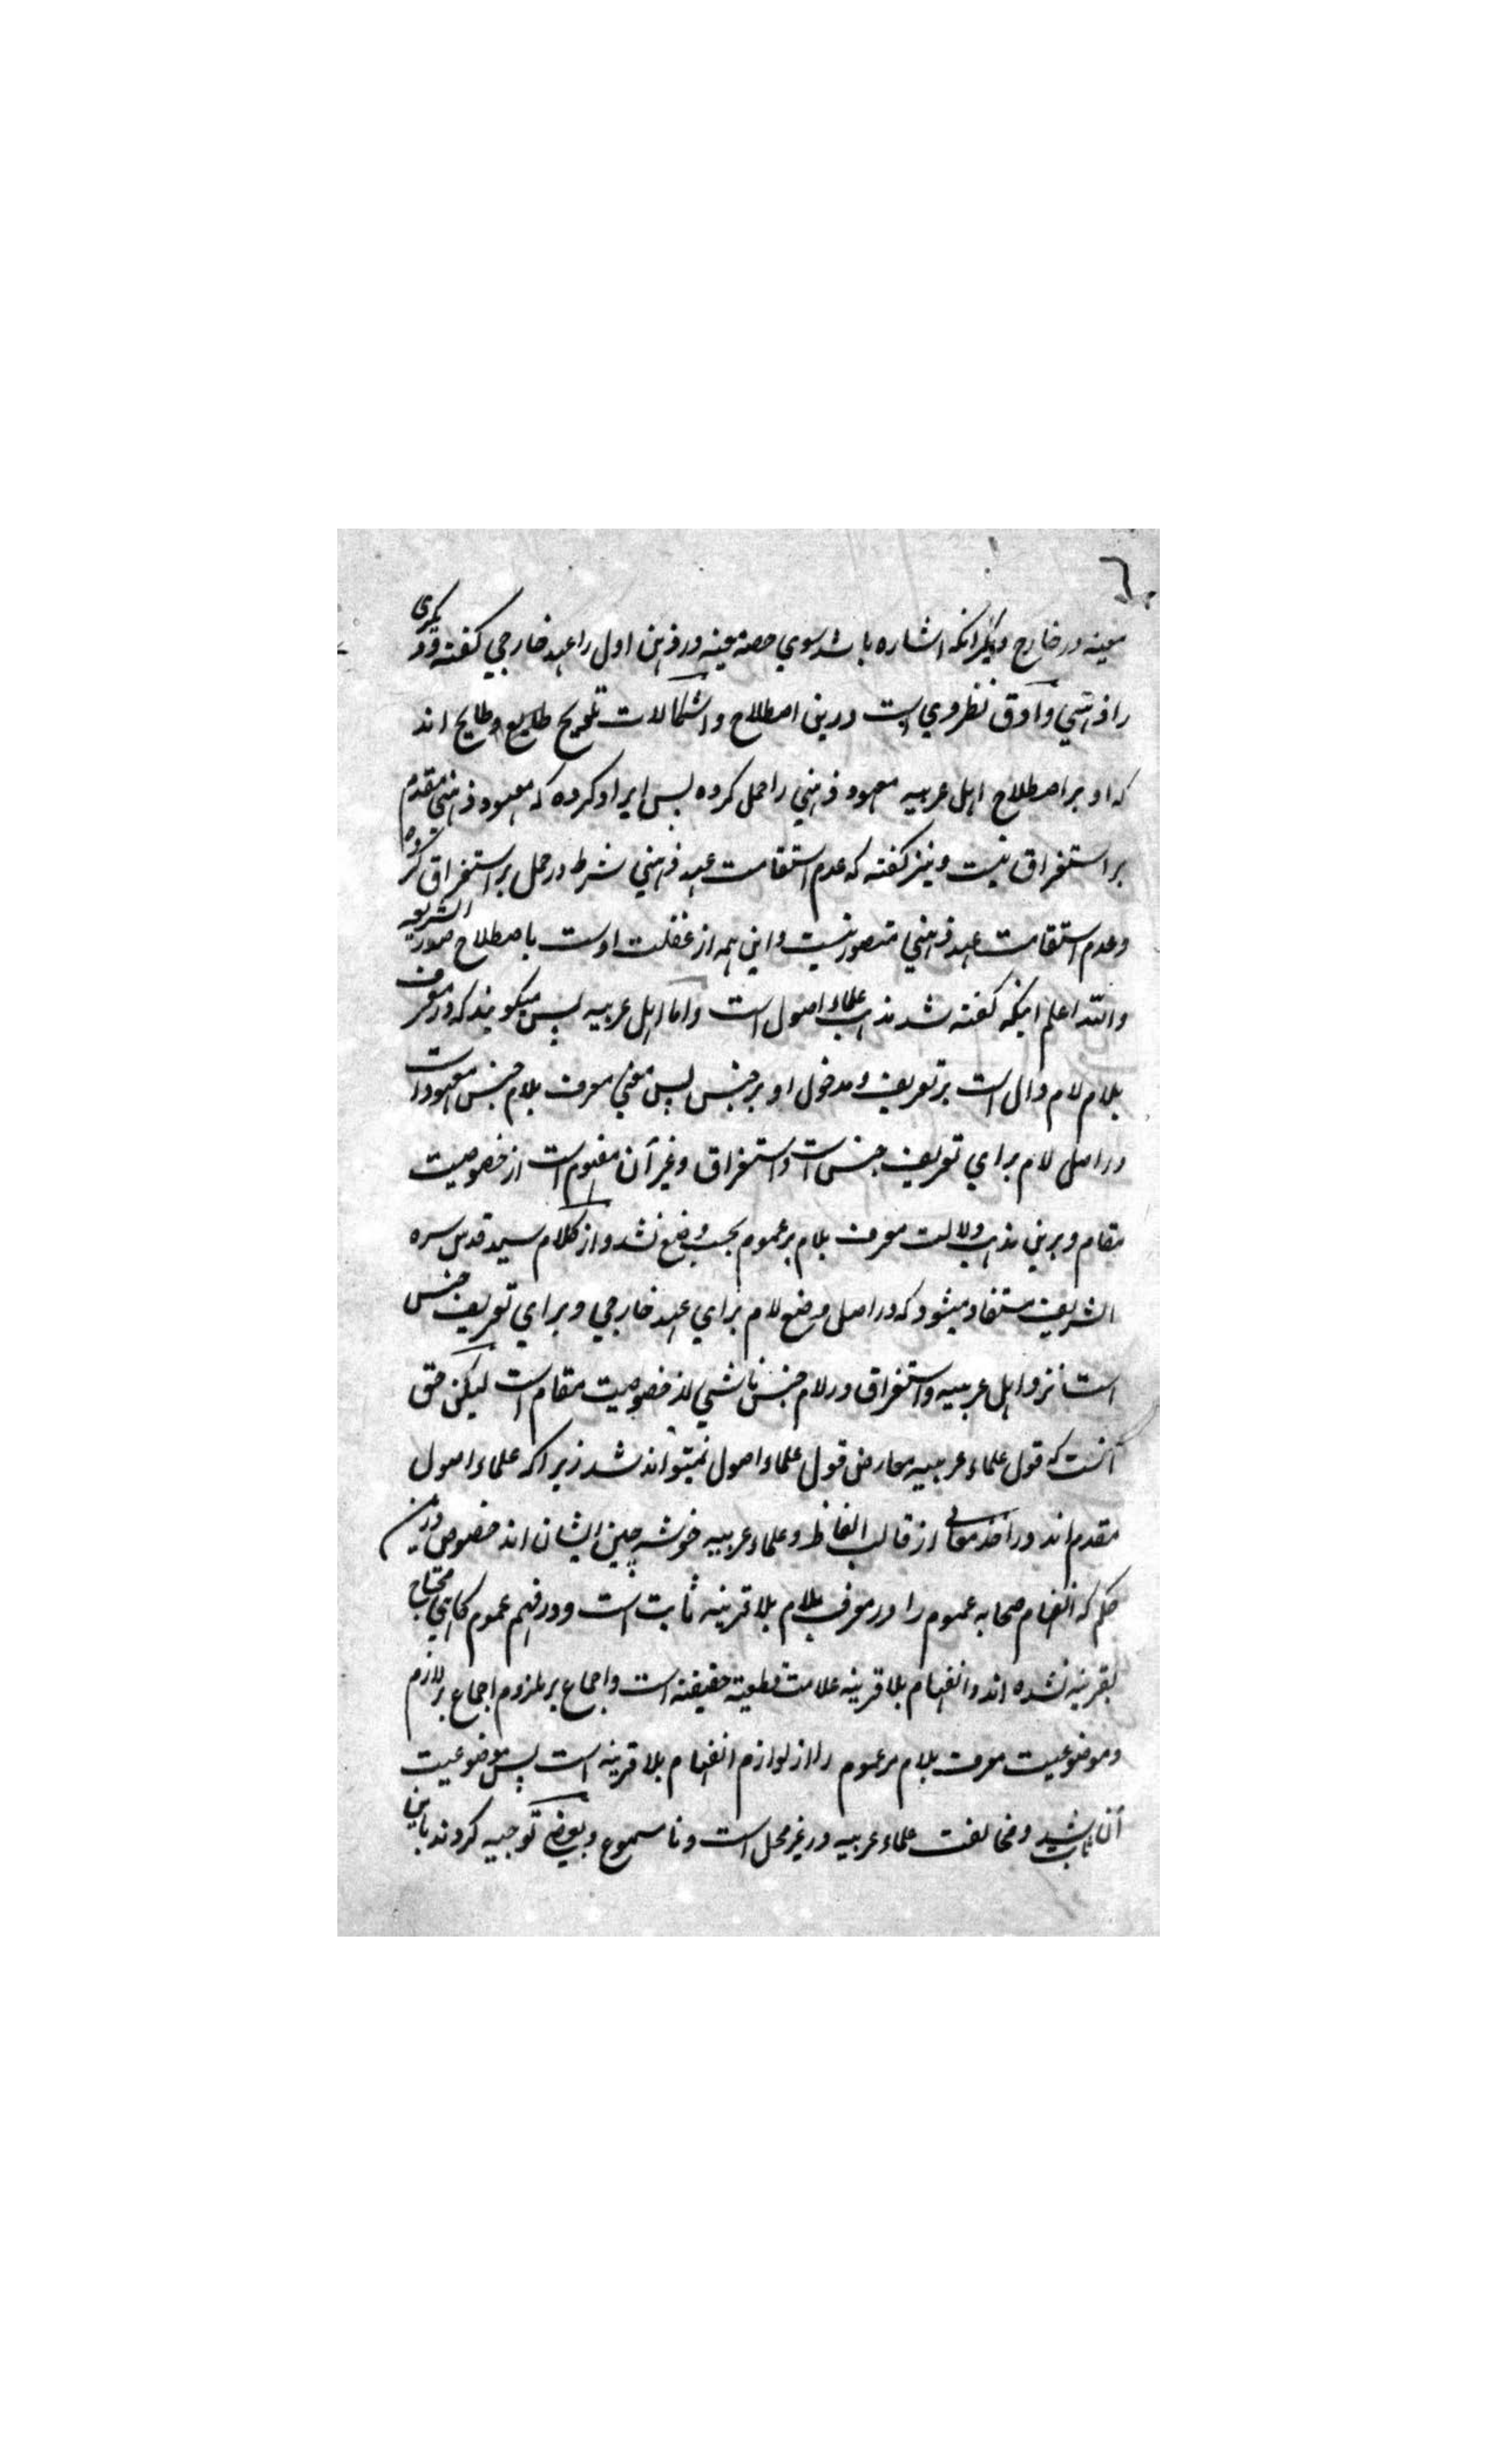 معینه در خارج و دیگر آنکه اشاره باشد سوی حصه معینه در ذهن اول را عهد خارجی گفته و دیگری
را ذهنی و ادق نظر وی است درین اصطلاح و اشکالات تلویح اند
که او بر اصطلاح اهل عربیه معهود ذهنی را حمل کرده پس ایراد کرده که معهود ذهنی مقدم
بر استغراق نیست و نیز گفته که عدم استقامت عهد ذهنی شرط در حمل بر استغراق کرده
و عدم استقامت عهد ذهنی متصور نیست و این همه از غفلت اوست باصطلاح صدر الشریعه
والله اعلم اینکه گفته شد مذهب علماء اصول است و اما اهل عربیه پس میگویند که در معرف
بلام لام دال است بر تعریف و مدخول او بر جنس پس معنی معرف بلام جنس معهود است
در اصل لام برای تعریف جنس است و استغراق و غیر آن مفهوم است از خصوصیت
مقام و برین مذهب دلالت معرف بلام بر عموم بحسب وضع نشد و از کلام سید قدس سره
الشریف مستفاد میشود که در اصل وضع لام برای عهد خارجی و برای تعریف جنس
است نزد اهل عربیه و استغراق در لام جنس ناشی از خصوصیت مقام است لیکن حق
آنست که قول علماء عربیه معارض قول علماء اصول نمیتواند شد زیرا که علماء اصول
مقدم اند در اخذ معانی از قالب الفاظ و علماء عربیه خوشه چین ایشان اند خصوص درین
حکم که انفهام صحابه عموم را در معرف بلام بلا قرینه ثابت است و در فهم عموم گاهی محتاج
بقرینه نشده اند و انفهام بلا قرینه علامت قطعیه حقیقة است و اجماع بر ملزوم اجماع بر لازم
و موضوعیت معرف بلام مر عموم را از لوازم انفهام بلا قرینه است پس موضوعیت
آن ثابت شد و مخالفت علماء عربیه در غیر محل است و نا مسموع و بعضی توجیه کردند باین